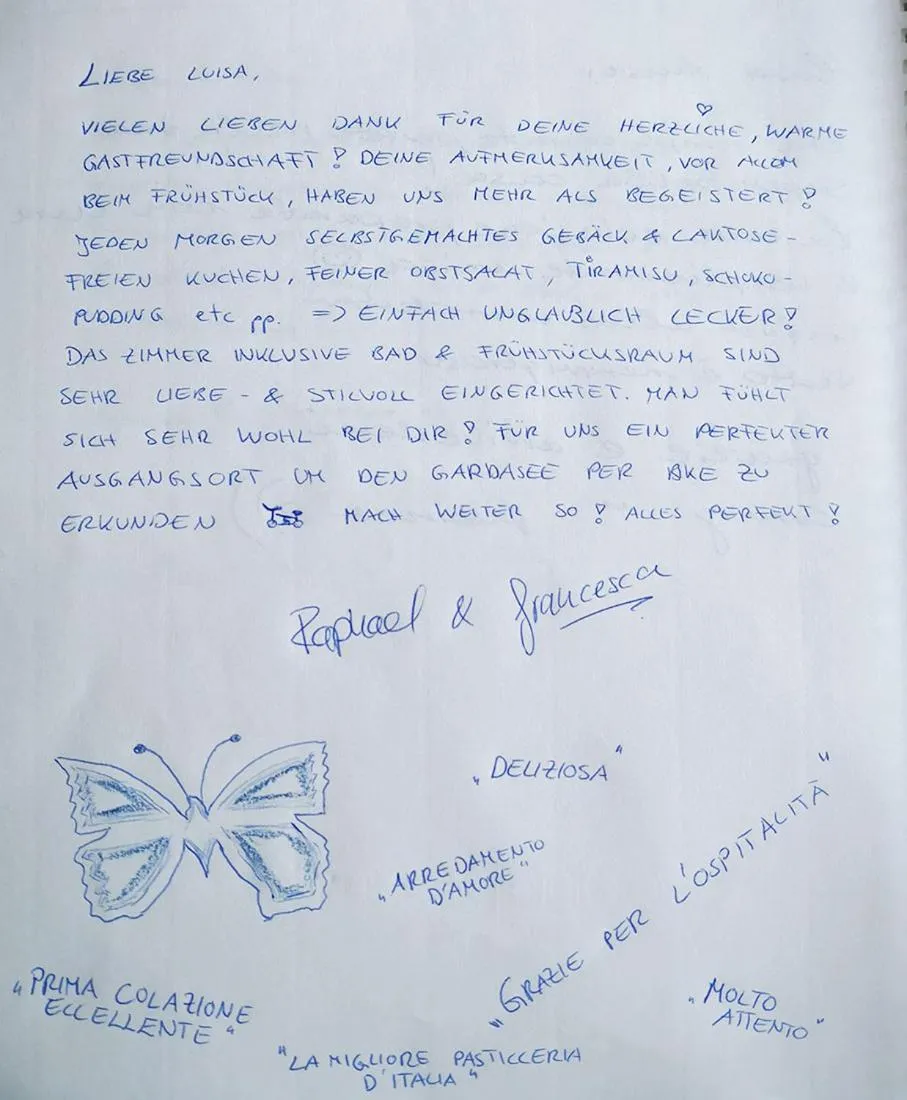 LIEBE LUISA,
VIELEN LIEBEN DANK FÜR DEINE HERZLICHE, WARME
GASTFREUNDSCHAFT! DEINE AUFMERKSAMKEIT, VOR ALLEM
BEIM FRÜHSTÜCK, HABEN UNS MEHR ALS BEGEISTERT!
JEDEN MORGEN SELBSTGEMACHTES GEBÄCK & LAKTOSE-
FREIEN KUCHEN, FEINER OBSTSALAT, TIRAMISU, SCHOKO-
PUDDING etc pp. => EINFACH UNGLAUBLICH LECKER!
DAS ZIMMER INKLUSIVE BAD & FRÜHSTÜCKSRAUM SIND
SEHR LIEBE- & STILVOLL EINGERICHTET. MAN FÜHLT
SICH SEHR WOHL BEI DIR! FÜR UNS EIN PERFEKTER
AUSGANGSORT UM DEN GARDASEE PER BIKE ZU
ERKUNDEN MACH WEITER SO! ALLES PERFEKT!
Raphael & Francesca
„DELIZIOSA"
„ARREDAMENTO
D'AMORE"
"GRAZIE PER L'OSPITALITÀ"
„PRIMA COLAZIONE
ECCELLENTE"
„MOLTO
ATTENTO"
"LA MIGLIORE PASTICCERIA
D'ITALIA"